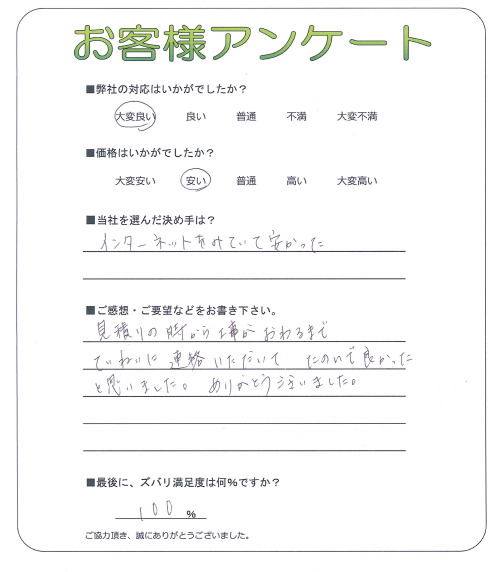 お客様アンケート
■弊社の対応はいかがでしたか？
大変良い 良い 普通 不満 大変不満
■価格はいかがでしたか？
大変安い 安い 普通 高い 大変高い
■当社を選んだ決め手は？
インターネットをみていて安かった
■ご感想・ご要望などをお書き下さい。
見積りの時から工事がおわるまで
ていねいに連絡いただいて たのいで良かった
と思いました。 ありがとう ました。
■最後に、ズバリ満足度は何％ですか？
100 ％
ご協力頂き、誠にありがとうございました。